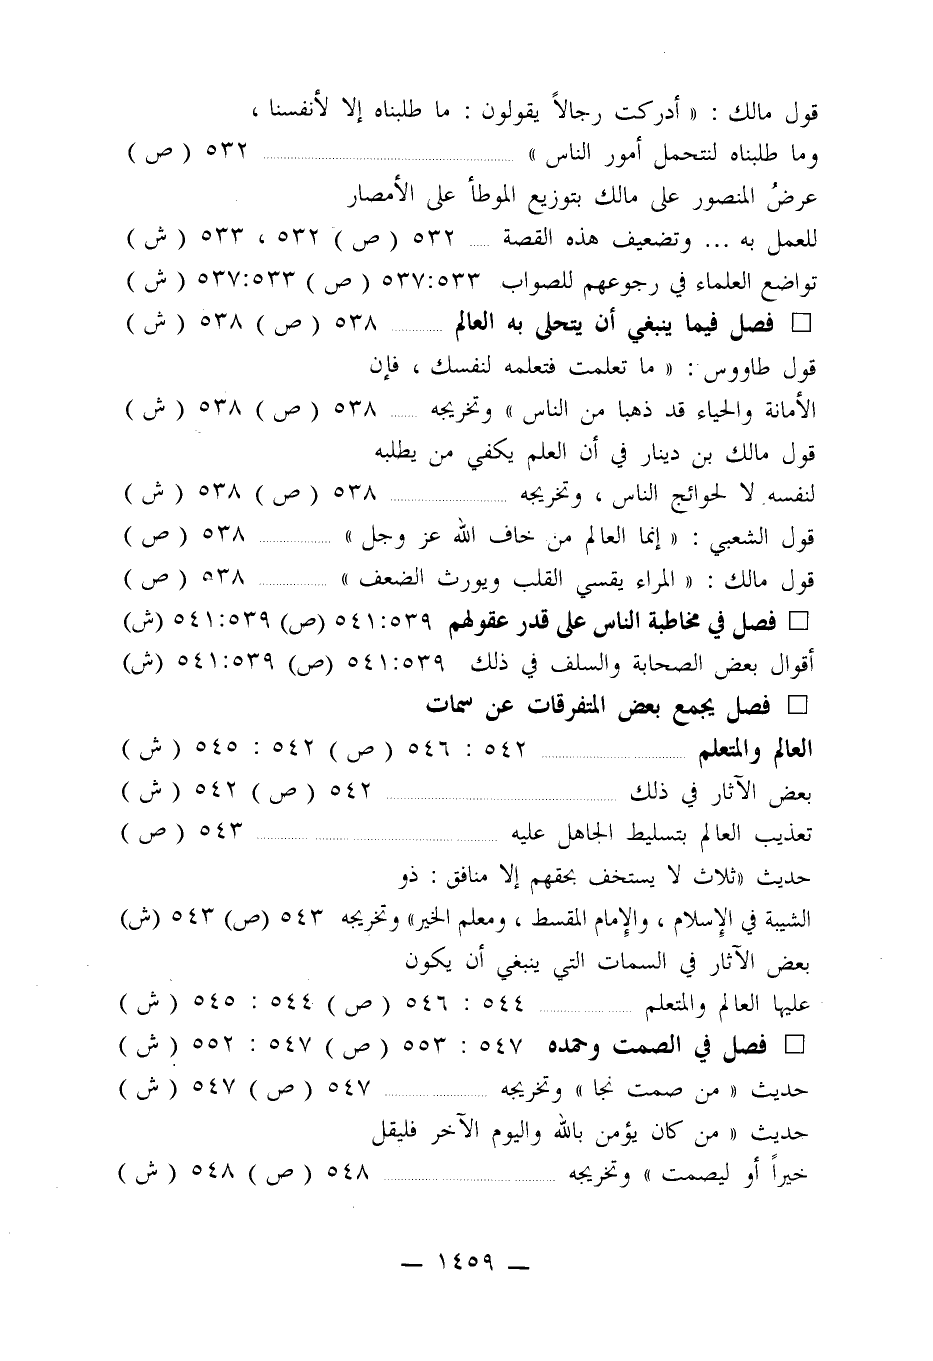 قول مالك : « أدركت رجالاً يقولون : ما طلبناه إلا لأنفسنا ،
وما طلبناه لنتحمل أمور الناس » ........ ٥٣٢ ( ص )
عرضُ المنصور على مالك بتوزيع الموطأ على الأمصار
للعمل به ... وتضعيف هذه القصة ..... ٥٣٢ ( ص ) ٥٣٢ ، ٥٣٣ ( ش )
تواضع العلماء في رجوعهم للصواب ٥٣٧:٥٣٣ ( ص ) ٥٣٧:٥٣٣ ( ش )
□ فصل فيما ينبغي أن يتحلى به العالم ........ ٥٣٨ ( ص ) ٥٣٨ ( ش )
قول طاووس : « ما تعلمت فتعلمه لنفسك ، فإن
الأمانة والحياء قد ذهبا من الناس » وتخريجه ..... ٥٣٨ ( ص ) ٥٣٨ ( ش )
قول مالك بن دينار في أن العلم يكفي من يطلبه
لنفسه لا لحوائج الناس ، وتخريجه ........ ٥٣٨ ( ص ) ٥٣٨ ( ش )
قول الشعبي : « إنما العالم من خاف الله عز وجل » ........ ٥٣٨ ( ص )
قول مالك : « المراء يقسي القلب ويورث الضعف » ........ ٥٣٨ ( ص )
□ فصل في مخاطبة الناس على قدر عقولهم ٥٤١:٥٣٩ (ص) ٥٤١:٥٣٩ (ش)
أقوال بعض الصحابة والسلف في ذلك ٥٤١:٥٣٩ (ص) ٥٤١:٥٣٩ (ش)
□ فصل يجمع بعض المتفرقات عن سمات
العالم والمتعلم ........ ٥٤٢ : ٥٤٦ ( ص ) ٥٤٢ : ٥٤٥ ( ش )
بعض الآثار في ذلك ........ ٥٤٢ ( ص ) ٥٤٢ ( ش )
تعذيب العالم بتسليط الجاهل عليه ........ ٥٤٣ ( ص )
حديث «ثلاث لا يستخف بحقهم إلا منافق : ذو
الشيبة في الإسلام ، والإمام المقسط ، ومعلم الخير» وتخريجه ٥٤٣ (ص) ٥٤٣ (ش)
بعض الآثار في السمات التي ينبغي أن يكون
عليها العالم والمتعلم ........ ٥٤٤ : ٥٤٦ ( ص ) ٥٤٤ : ٥٤٥ ( ش )
□ فصل في الصمت وحمده ٥٤٧ : ٥٥٣ ( ص ) ٥٤٧ : ٥٥٢ ( ش )
حديث « من صمت نجا » وتخريجه ........ ٥٤٧ ( ص ) ٥٤٧ ( ش )
حديث « من كان يؤمن بالله واليوم الآخر فليقل
خيراً أو ليصمت » وتخريجه ........ ٥٤٨ ( ص ) ٥٤٨ ( ش )
— ١٤٥٩ —